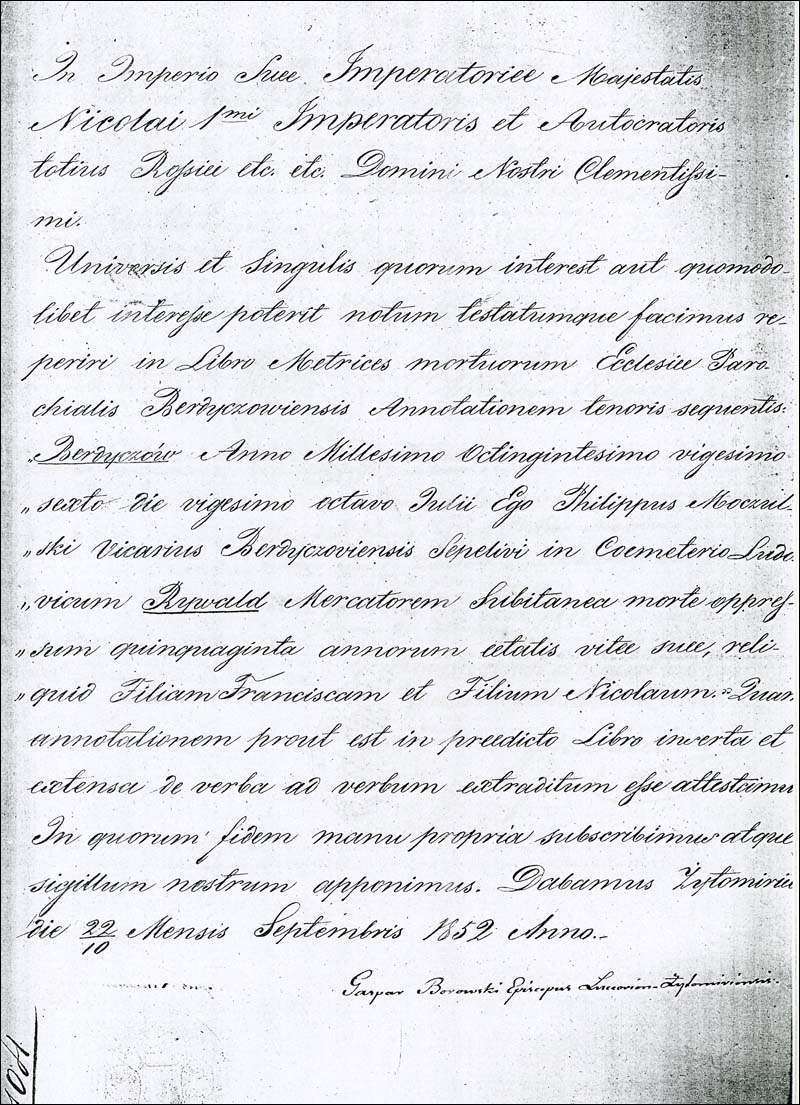 In Imperio Suae Imperatoriae Majestatis
Nicolai 1mi Imperatoris et Autocratoris
totius Rossiae etc. etc. Domini Nostri Clementissi-
mi.
Universis et Singulis quorum interest aut quomodo-
libet interesse poterit notum testatumque facimus re-
periri in Libro Metrices mortuorum Ecclesiae Paro
chialis Berdyczowiensis Annotationem tenoris sequentis:
„Berdyczów Anno Millesimo Octingintesimo vigesimo
„sexto die vigesimo octavo Julii Ego Philippus Moczul-
„ski Vicarius Berdyczoviensis Sepelivi in Coemeterio Ludo
„vicum Rywald Mercatorem Subitanea morte oppres-
„sum quinquaginta annorum aetatis vitae suae, reli-
„quid Filiam Franciscam et Filium Nicolaum." Quam
annotationem prout est in praedicto Libro inserta et
extensa de verba ad verbum extraditum esse attestamu
In quorum fidem manu propria subscribimus atque
sigillum nostrum apponimus. Dabamus Żytomiria
die 22/10 Mensis Septembris 1852 Anno.-
Gaspar Borowski Episcopus Luceorien-Żytomiriensis.
1001